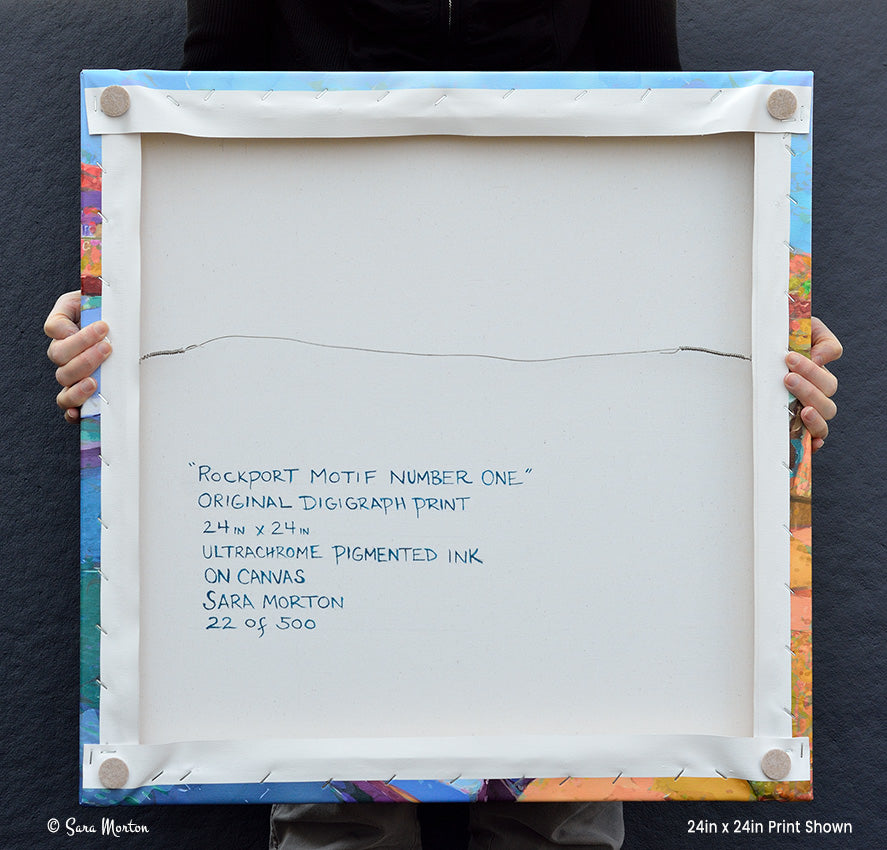 "ROCKPORT MOTIF NUMBER ONE"
ORIGINAL DIGIGRAPH PRINT
24IN X 24IN
ULTRACHROME PIGMENTED INK
ON CANVAS
SARA MORTON
22 of 500
© Sara Morton
24in x 24in Print Shown